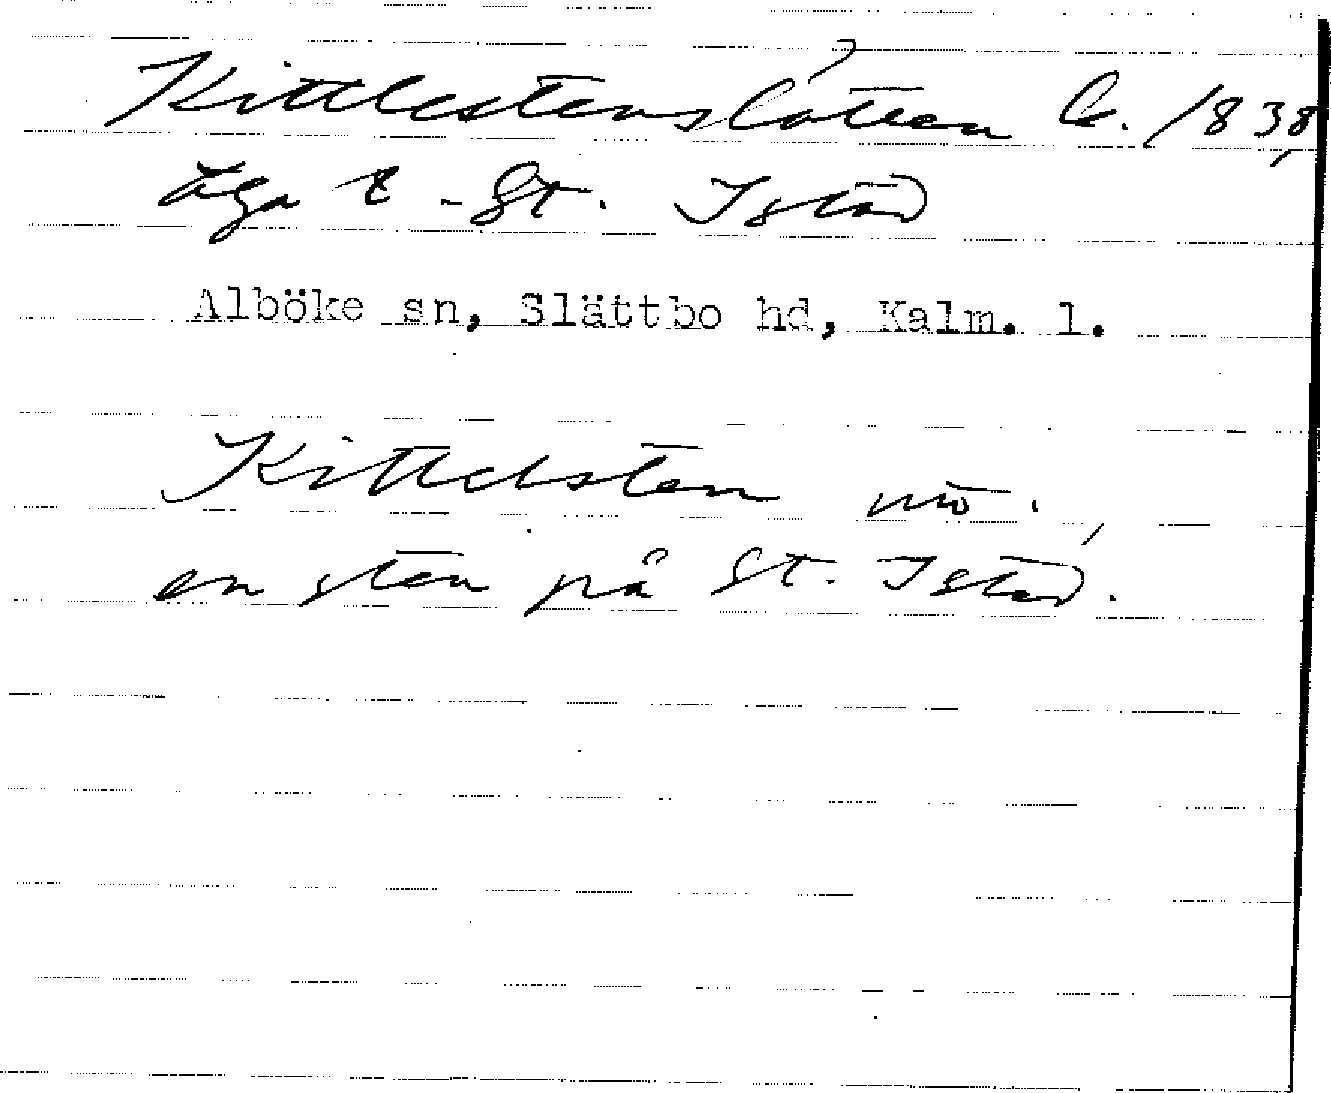 Kittlestenslotten b. 1838,
äga t. St. Istad
Alböke sn, Slättbo hd, Kalm. l.
Kittelsten mö.,
en sten på St. Istad.